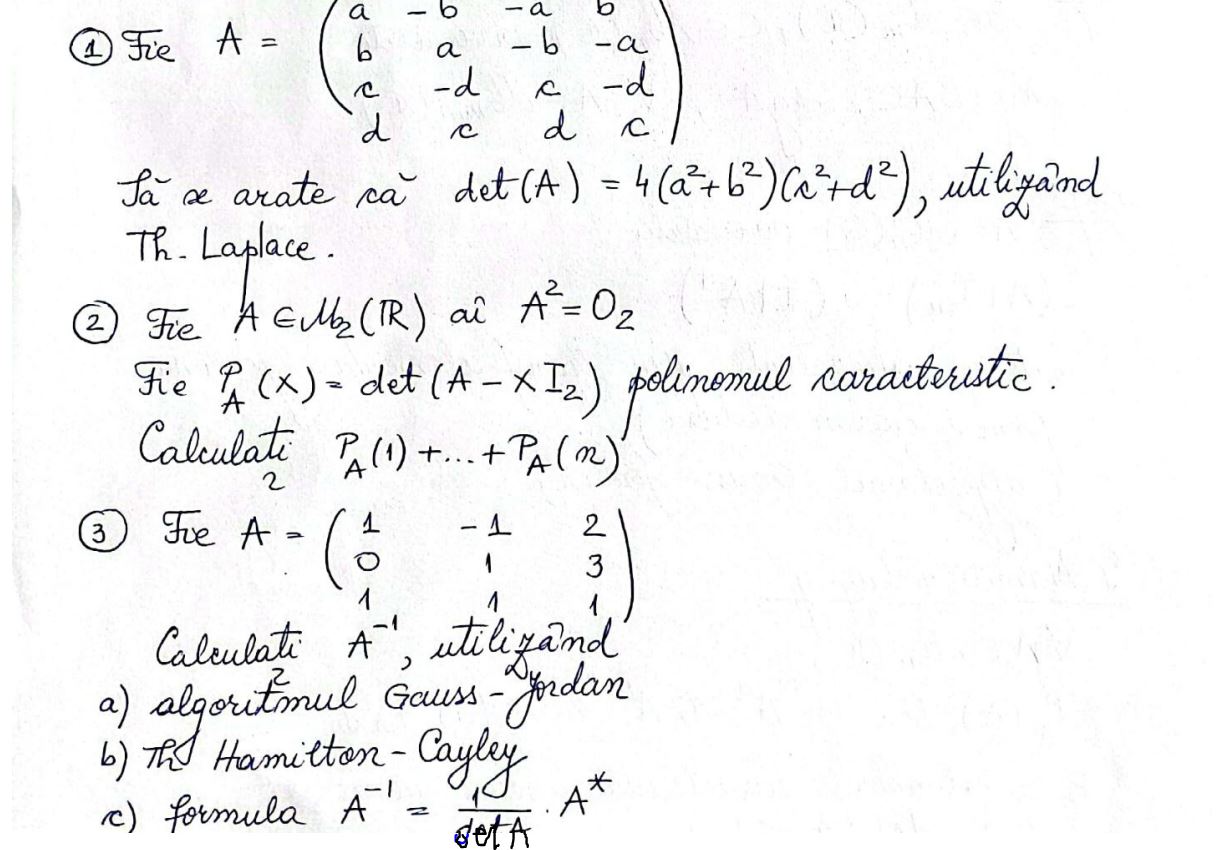 ① Fie A = ( a -b -a b
b a -b -a
c -d c -d
d c d c )
Să se arate că det(A) = 4(a²+b²)(c²+d²), utilizând
Th. Laplace.
② Fie A ∈ M₂(ℝ) aî A² = O₂
Fie P_A(X) = det(A - X I₂) polinomul caracteristic.
Calculați P_A(1) + ... + P_A(n)
③ Fie A = ( 1 -1 2
0 1 3
1 1 1 )
Calculați A⁻¹, utilizând
a) algoritmul Gauss-Jordan
b) Th Hamilton-Cayley
c) formula A⁻¹ = 1/det A · A*